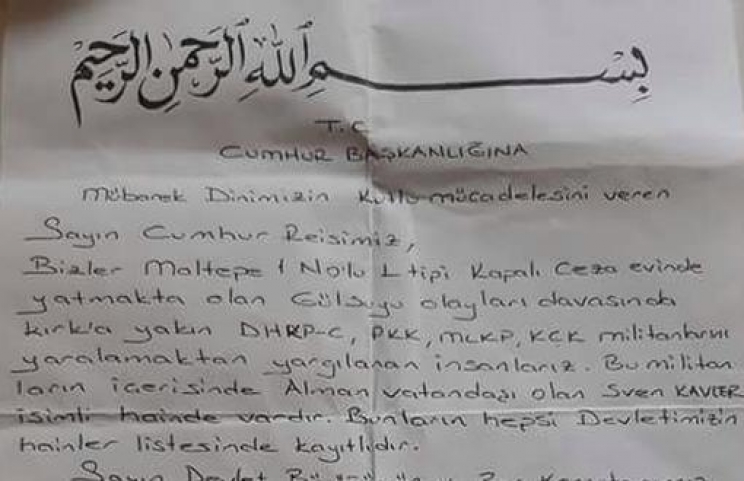 بِسْمِ اللهِ الرَّحْمٰنِ الرَّحِيْمِ
T.C
CUMHUR BAŞKANLIĞINA
Mübarek Dinimizin Kutlu mücadelesini veren
Sayın Cumhur Reisimiz,
Bizler Maltepe 1 No'lu L tipi Kapalı Ceza evinde
yatmakta olan Gülsuyu olayları davasında
kırk'a yakın DHKP-C, PKK, MLKP, KCK militanlarını
yaralamaktan yargılanan insanlarız. Bu militan
ların içerisinde Alman vatandaşı olan Sven KAVLER
isimli hainde vardır. Bunların hepsi Devletimizin
hainler listesinde kayıtlıdır.
Sayın Devlet